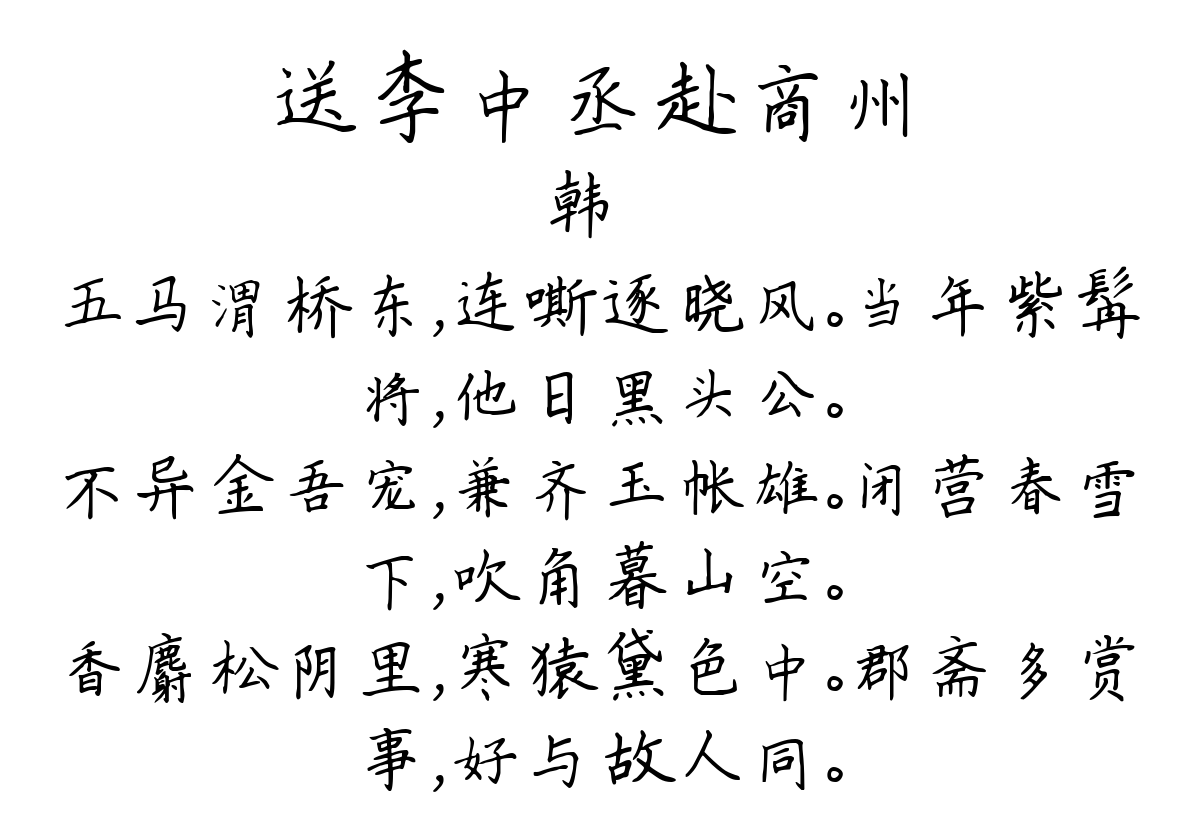 送李中丞赴商州
韩
五马渭桥东,连嘶逐晓风。当年紫髯
将,他日黑头公。
不异金吾宠,兼齐玉帐雄。闭营春雪
下,吹角暮山空。
香麝松阴里,寒猿黛色中。郡斋多赏
事,好与故人同。